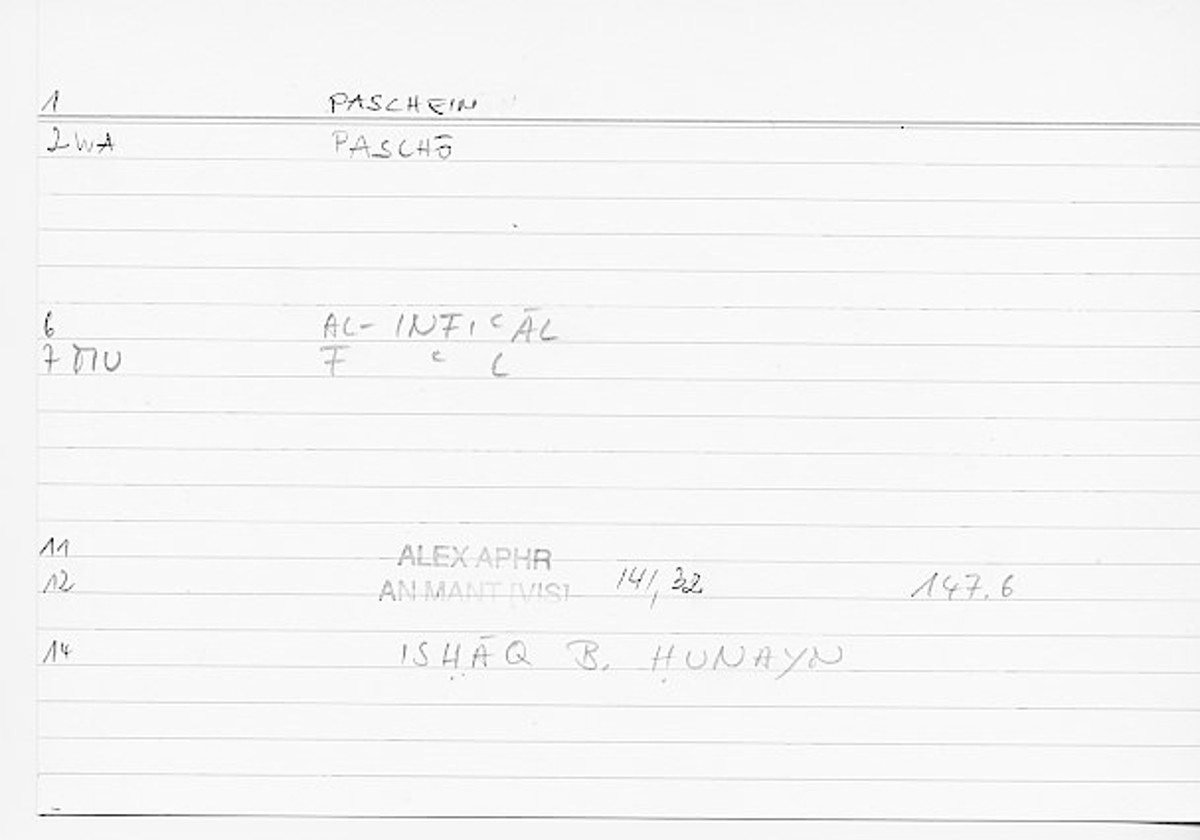 1 PASCHEIN
2 WA PASCHŌ
6 AL- INFI ʿ ĀL
7 F ʿ L
11 ALEX APHR
12 AN MANT [VIS] 141,32 147.6
14 ISḤĀQ B. ḤUNAYN